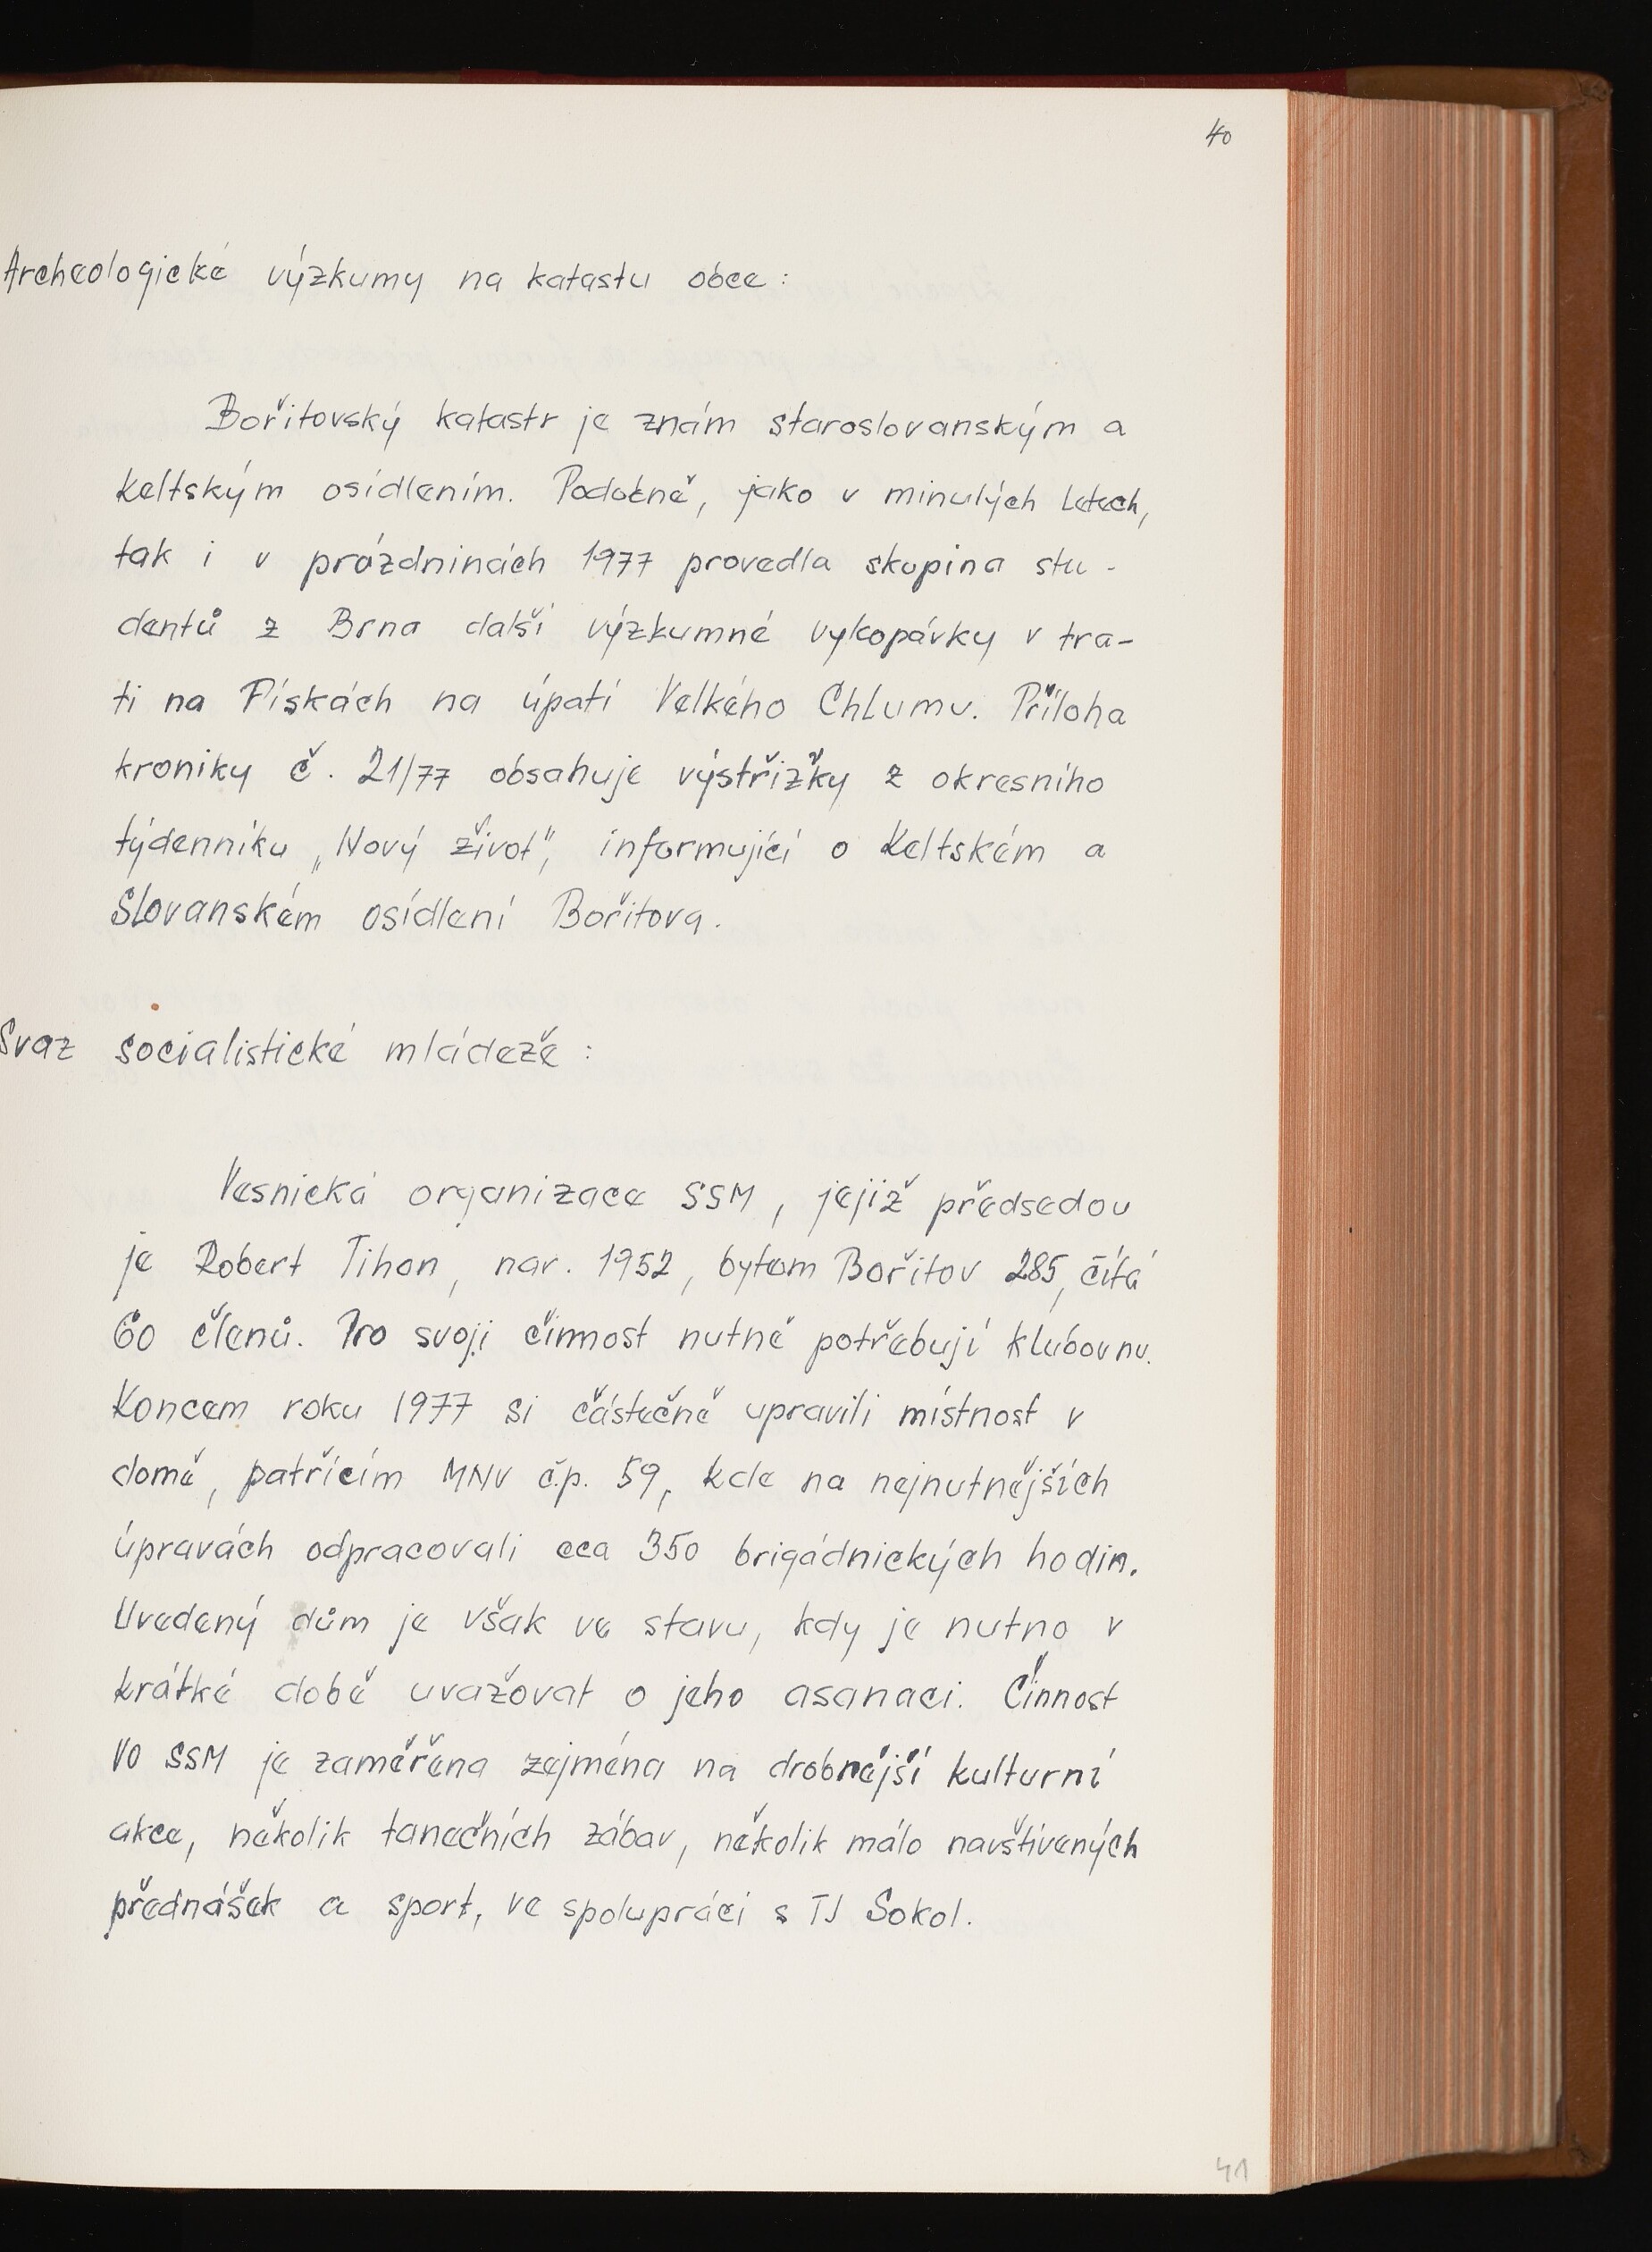 40
Archeologické výzkumy na katastu obce:
Bořitovský katastr je znám staroslovanským a
Keltským osídlením. Podobně, jako v minulých letech,
tak i v prázdninách 1977 provedla skupina stu-
dentů z Brna další výzkumné vykopávky v tra-
ti na Pískách na úpatí Velkého Chlumu. Příloha
kroniky č. 21/77 obsahuje výstřižky z okresního
týdenníku „Nový život", informující o Keltském a
Slovanském osídlení Bořitova.
Svaz socialistické mládeže:
Vesnická organizace SSM, jejíž předsedou
je Robert Tihon, nar. 1952, bytem Bořitov 285, čítá
60 členů. Pro svoji činnost nutně potřebují klubovnu.
Koncem roku 1977 si částečně upravili místnost v
domě, patřícím MNV č.p. 59, kde na nejnutnějších
úpravách odpracovali cca 350 brigádnických hodin.
Uvedený dům je však ve stavu, kdy je nutno v
krátké době uvažovat o jeho asanaci. Činnost
VO SSM je zaměřena zejména na drobnější kulturní
akce, několik tanečních zábav, několik málo navštívených
přednášek a sport, ve spolupráci s TJ Sokol.
41